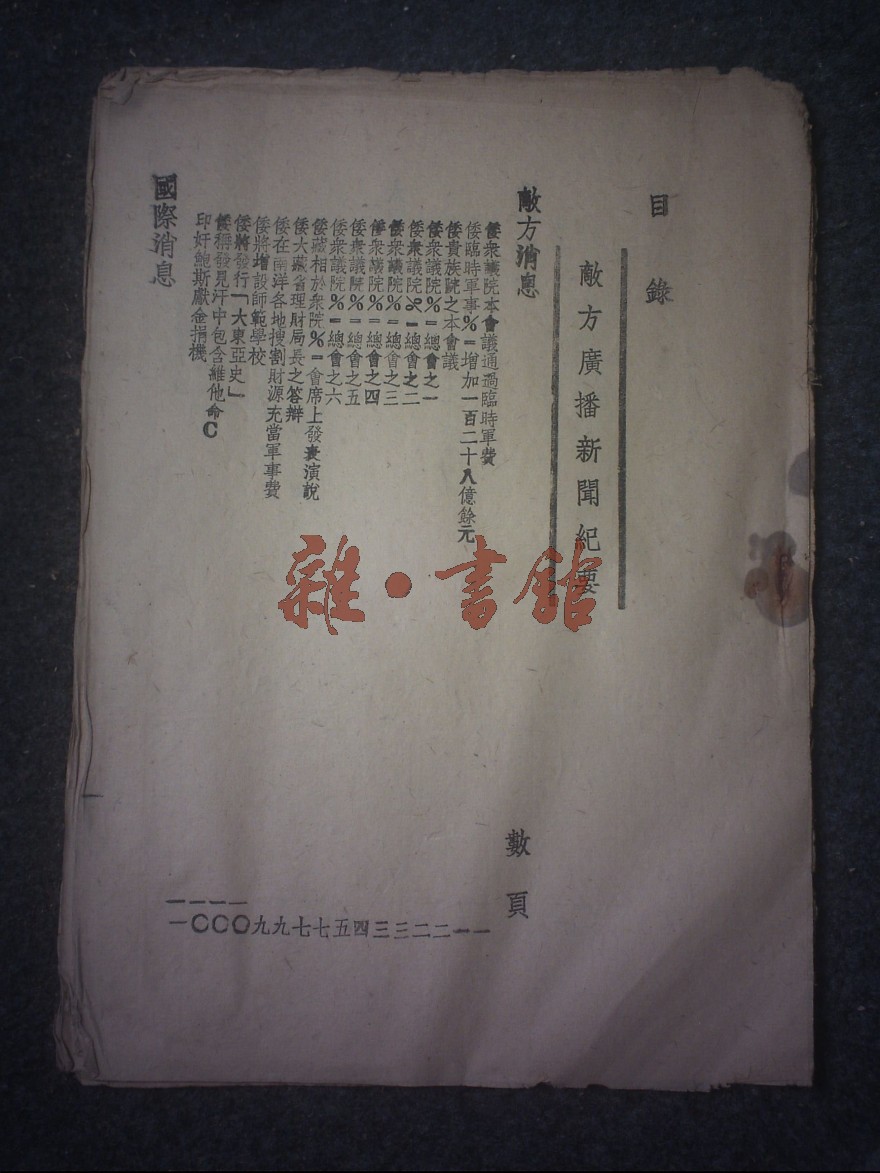 目錄
敵方廣播新聞紀要
敵方消息
數頁
倭衆議院本會議通過臨時軍費 一
倭臨時軍事%=增加一百二十八億餘元 一
倭貴族院之本會議 二
倭衆議院%=總會之一 二
倭衆議院%=總會之二 三
倭衆議院%=總會之三 三
倭衆議院%=總會之四 四
倭衆議院%=總會之五 五
倭衆議院%=總會之六 七
倭藏相於衆院%=會席上發表演說 七
倭大藏省理財局長之答辯 九
倭在南洋各地搜割財源充當軍事費 九
倭將增設師範學校 一〇
倭將發行「大東亞史」 一〇
倭稱發見汗中包含維他命C 一〇
印奸鮑斯獻金捐機 一一
國際消息
雜·書館